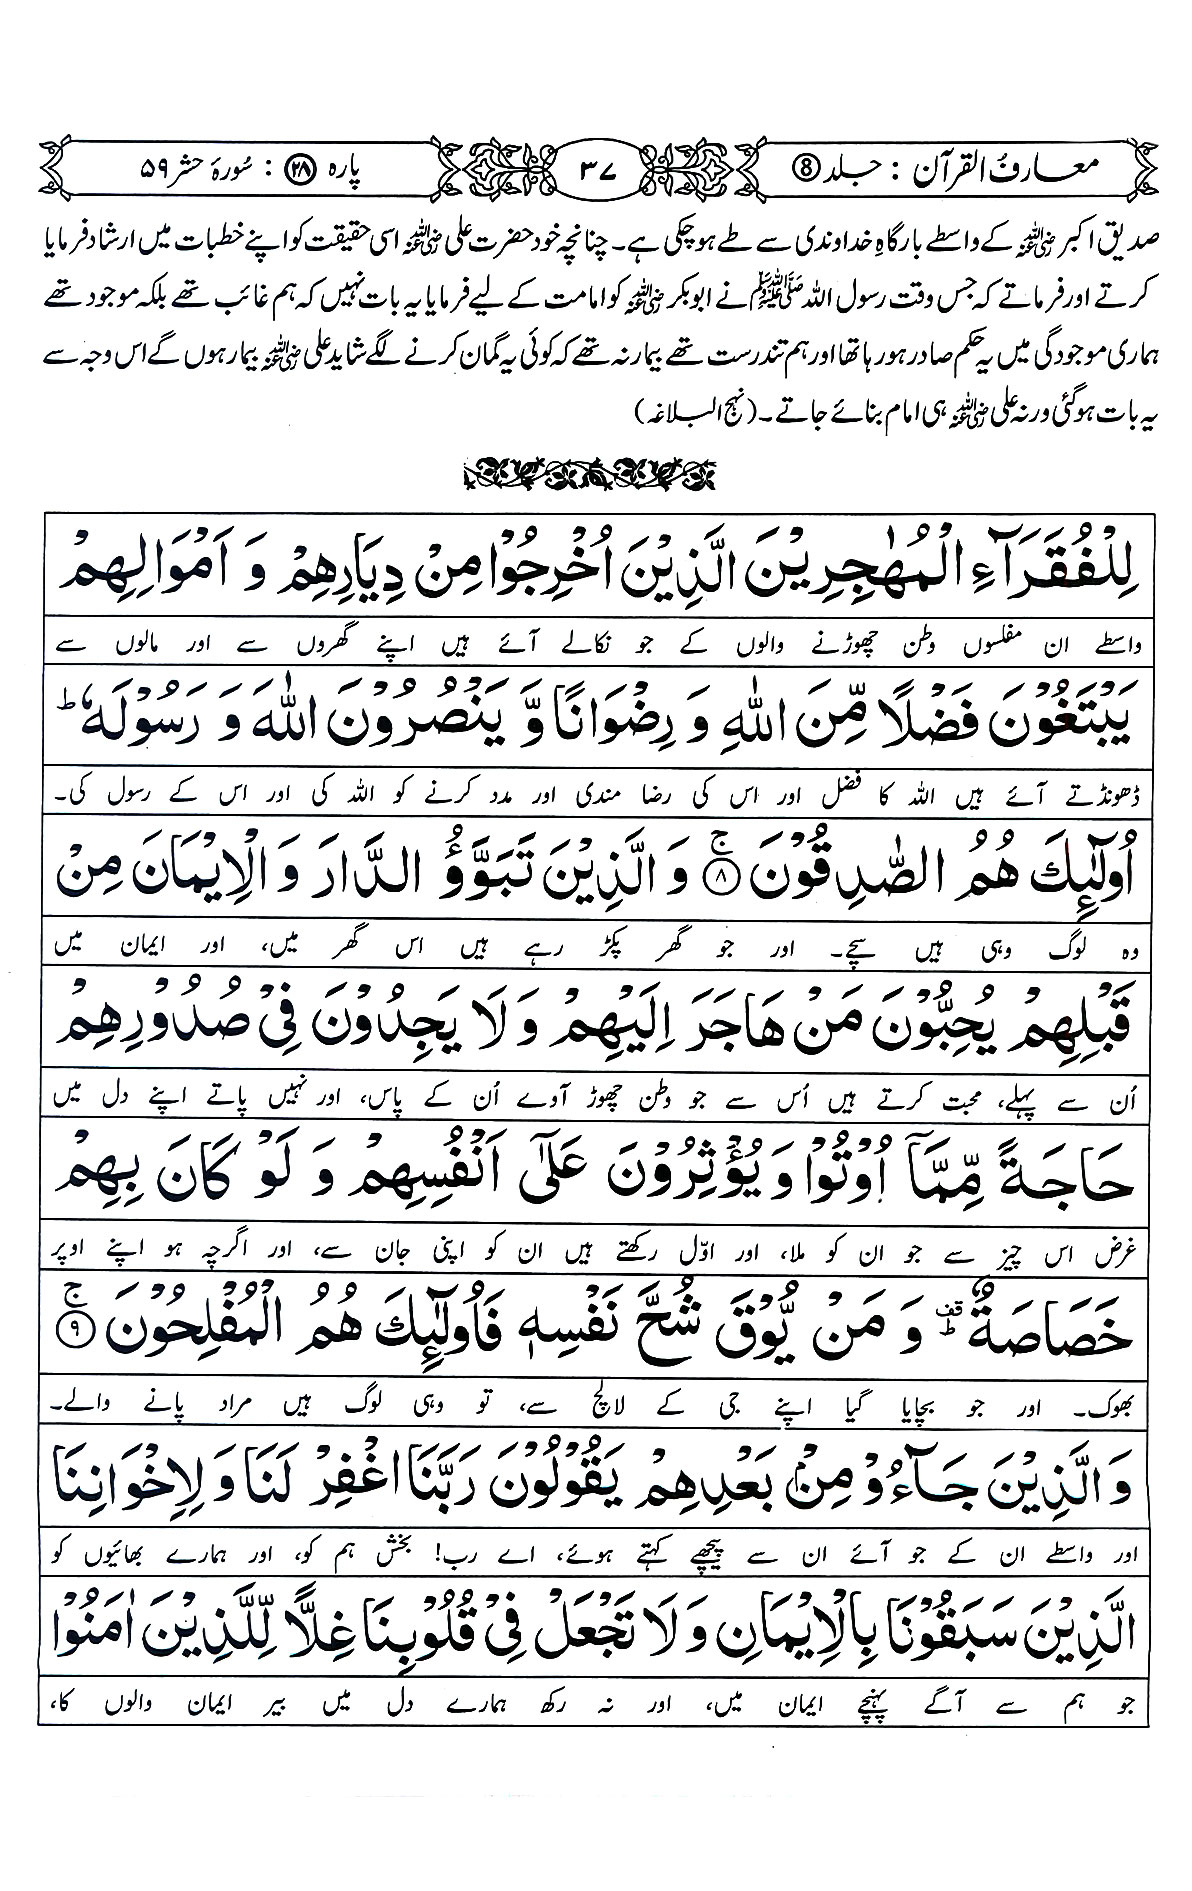 معارفُ القرآن : جلد ⑧
۳۷
پارہ ㉘ : سُورۂ حشر ۵۹
صدیق اکبر رضی اللہ عنہ کے واسطے بارگاہِ خداوندی سے طے ہوچکی ہے۔ چنانچہ خود حضرت علی رضی اللہ عنہ اسی حقیقت کو اپنے خطبات میں ارشاد فرمایا
کرتے اور فرماتے کہ جس وقت رسول اللہ ﷺ نے ابوبکر رضی اللہ عنہ کو امامت کے لیے فرمایا یہ بات نہیں کہ ہم غائب تھے بلکہ موجود تھے
ہماری موجودگی میں یہ حکم صادر ہو رہا تھا اور ہم تندرست تھے بیمار نہ تھے کہ کوئی یہ گمان کرنے لگے شاید علی رضی اللہ عنہ بیمار ہوں گے اس وجہ سے
یہ بات ہوگئی ورنہ علی رضی اللہ عنہ ہی امام بنائے جاتے۔ (نہج البلاغہ)
لِلْفُقَرَآءِ الْمُهٰجِرِيْنَ الَّذِيْنَ اُخْرِجُوْا مِنْ دِيَارِهِمْ وَ اَمْوَالِهِمْ
واسطے ان مفلسوں وطن چھوڑنے والوں کے جو نکالے آئے ہیں اپنے گھروں سے اور مالوں سے
يَبْتَغُوْنَ فَضْلًا مِّنَ اللّٰهِ وَ رِضْوَانًا وَّ يَنْصُرُوْنَ اللّٰهَ وَ رَسُوْلَهٗ ؕ
ڈھونڈتے آئے ہیں اللہ کا فضل اور اس کی رضا مندی اور مدد کرنے کو اللہ کی اور اس کے رسول کی۔
اُولٰٓئِكَ هُمُ الصّٰدِقُوْنَ ۚ﴿۸﴾ وَ الَّذِيْنَ تَبَوَّؤُ الدَّارَ وَ الْاِيْمَانَ مِنْ
وہ لوگ وہی ہیں سچے۔ اور جو گھر پکڑ رہے ہیں اس گھر میں، اور ایمان میں
قَبْلِهِمْ يُحِبُّوْنَ مَنْ هَاجَرَ اِلَيْهِمْ وَ لَا يَجِدُوْنَ فِيْ صُدُوْرِهِمْ
اُن سے پہلے، محبت کرتے ہیں اُس سے جو وطن چھوڑ آوے اُن کے پاس، اور نہیں پاتے اپنے دل میں
حَاجَةً مِّمَّاۤ اُوْتُوْا وَ يُؤْثِرُوْنَ عَلٰۤى اَنْفُسِهِمْ وَ لَوْ كَانَ بِهِمْ
غرض اس چیز سے جو ان کو ملا، اور اوّل رکھتے ہیں ان کو اپنی جان سے، اور اگرچہ ہو اپنے اوپر
خَصَاصَةٌ ؕ۫ وَ مَنْ يُّوْقَ شُحَّ نَفْسِهٖ فَاُولٰٓئِكَ هُمُ الْمُفْلِحُوْنَ ۚ﴿۹﴾
بھوک۔ اور جو بچایا گیا اپنے جی کے لالچ سے، تو وہی لوگ ہیں مراد پانے والے۔
وَ الَّذِيْنَ جَآءُوْ مِنْۢ بَعْدِهِمْ يَقُوْلُوْنَ رَبَّنَا اغْفِرْ لَنَا وَ لِاِخْوَانِنَا
اور واسطے ان کے جو آئے ان سے پیچھے کہتے ہوئے، اے رب! بخش ہم کو، اور ہمارے بھائیوں کو
الَّذِيْنَ سَبَقُوْنَا بِالْاِيْمَانِ وَ لَا تَجْعَلْ فِيْ قُلُوْبِنَا غِلًّا لِّلَّذِيْنَ اٰمَنُوْا
جو ہم سے آگے پہنچے ایمان میں، اور نہ رکھ ہمارے دل میں بیر ایمان والوں کا،